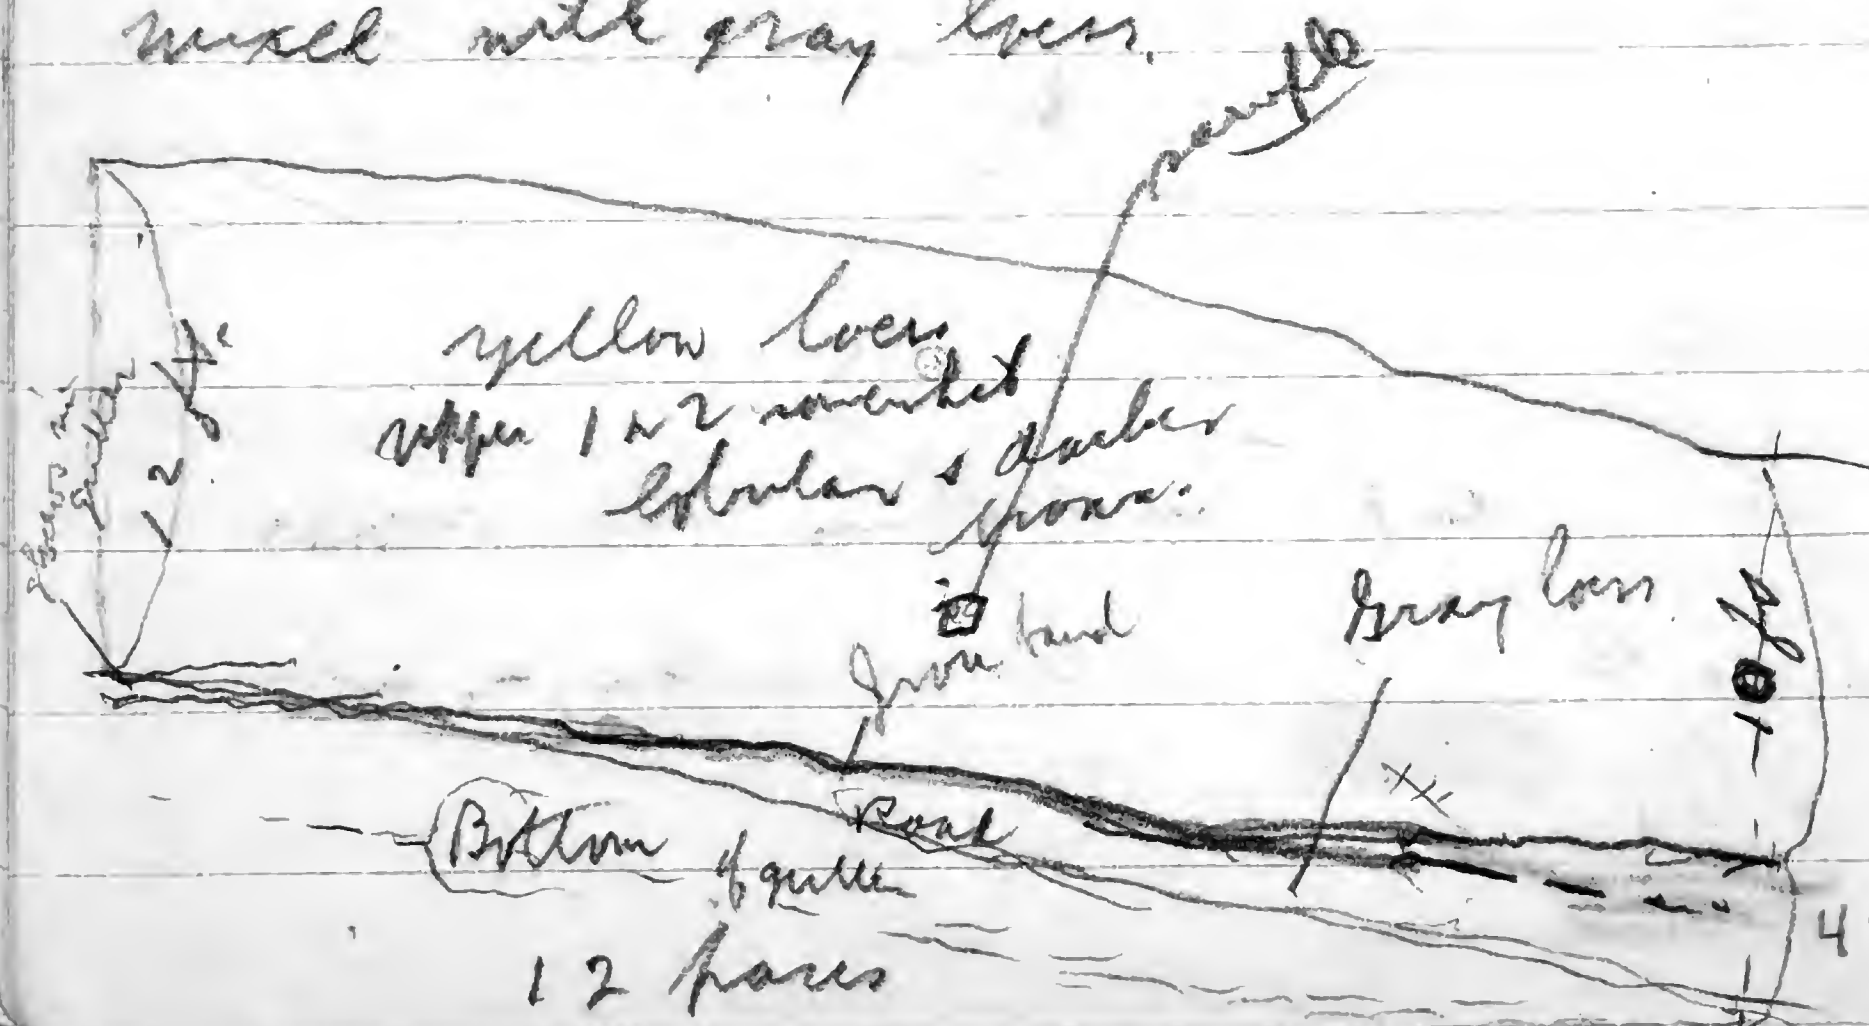 mixed with gray loess.
sample
yellow loess
upper 1 to 2 somewhat
lobular & darker
brown.
12 ft.
Iron band
Gray loess
10 ft
Road
Bottom of gulley
12 paces
4